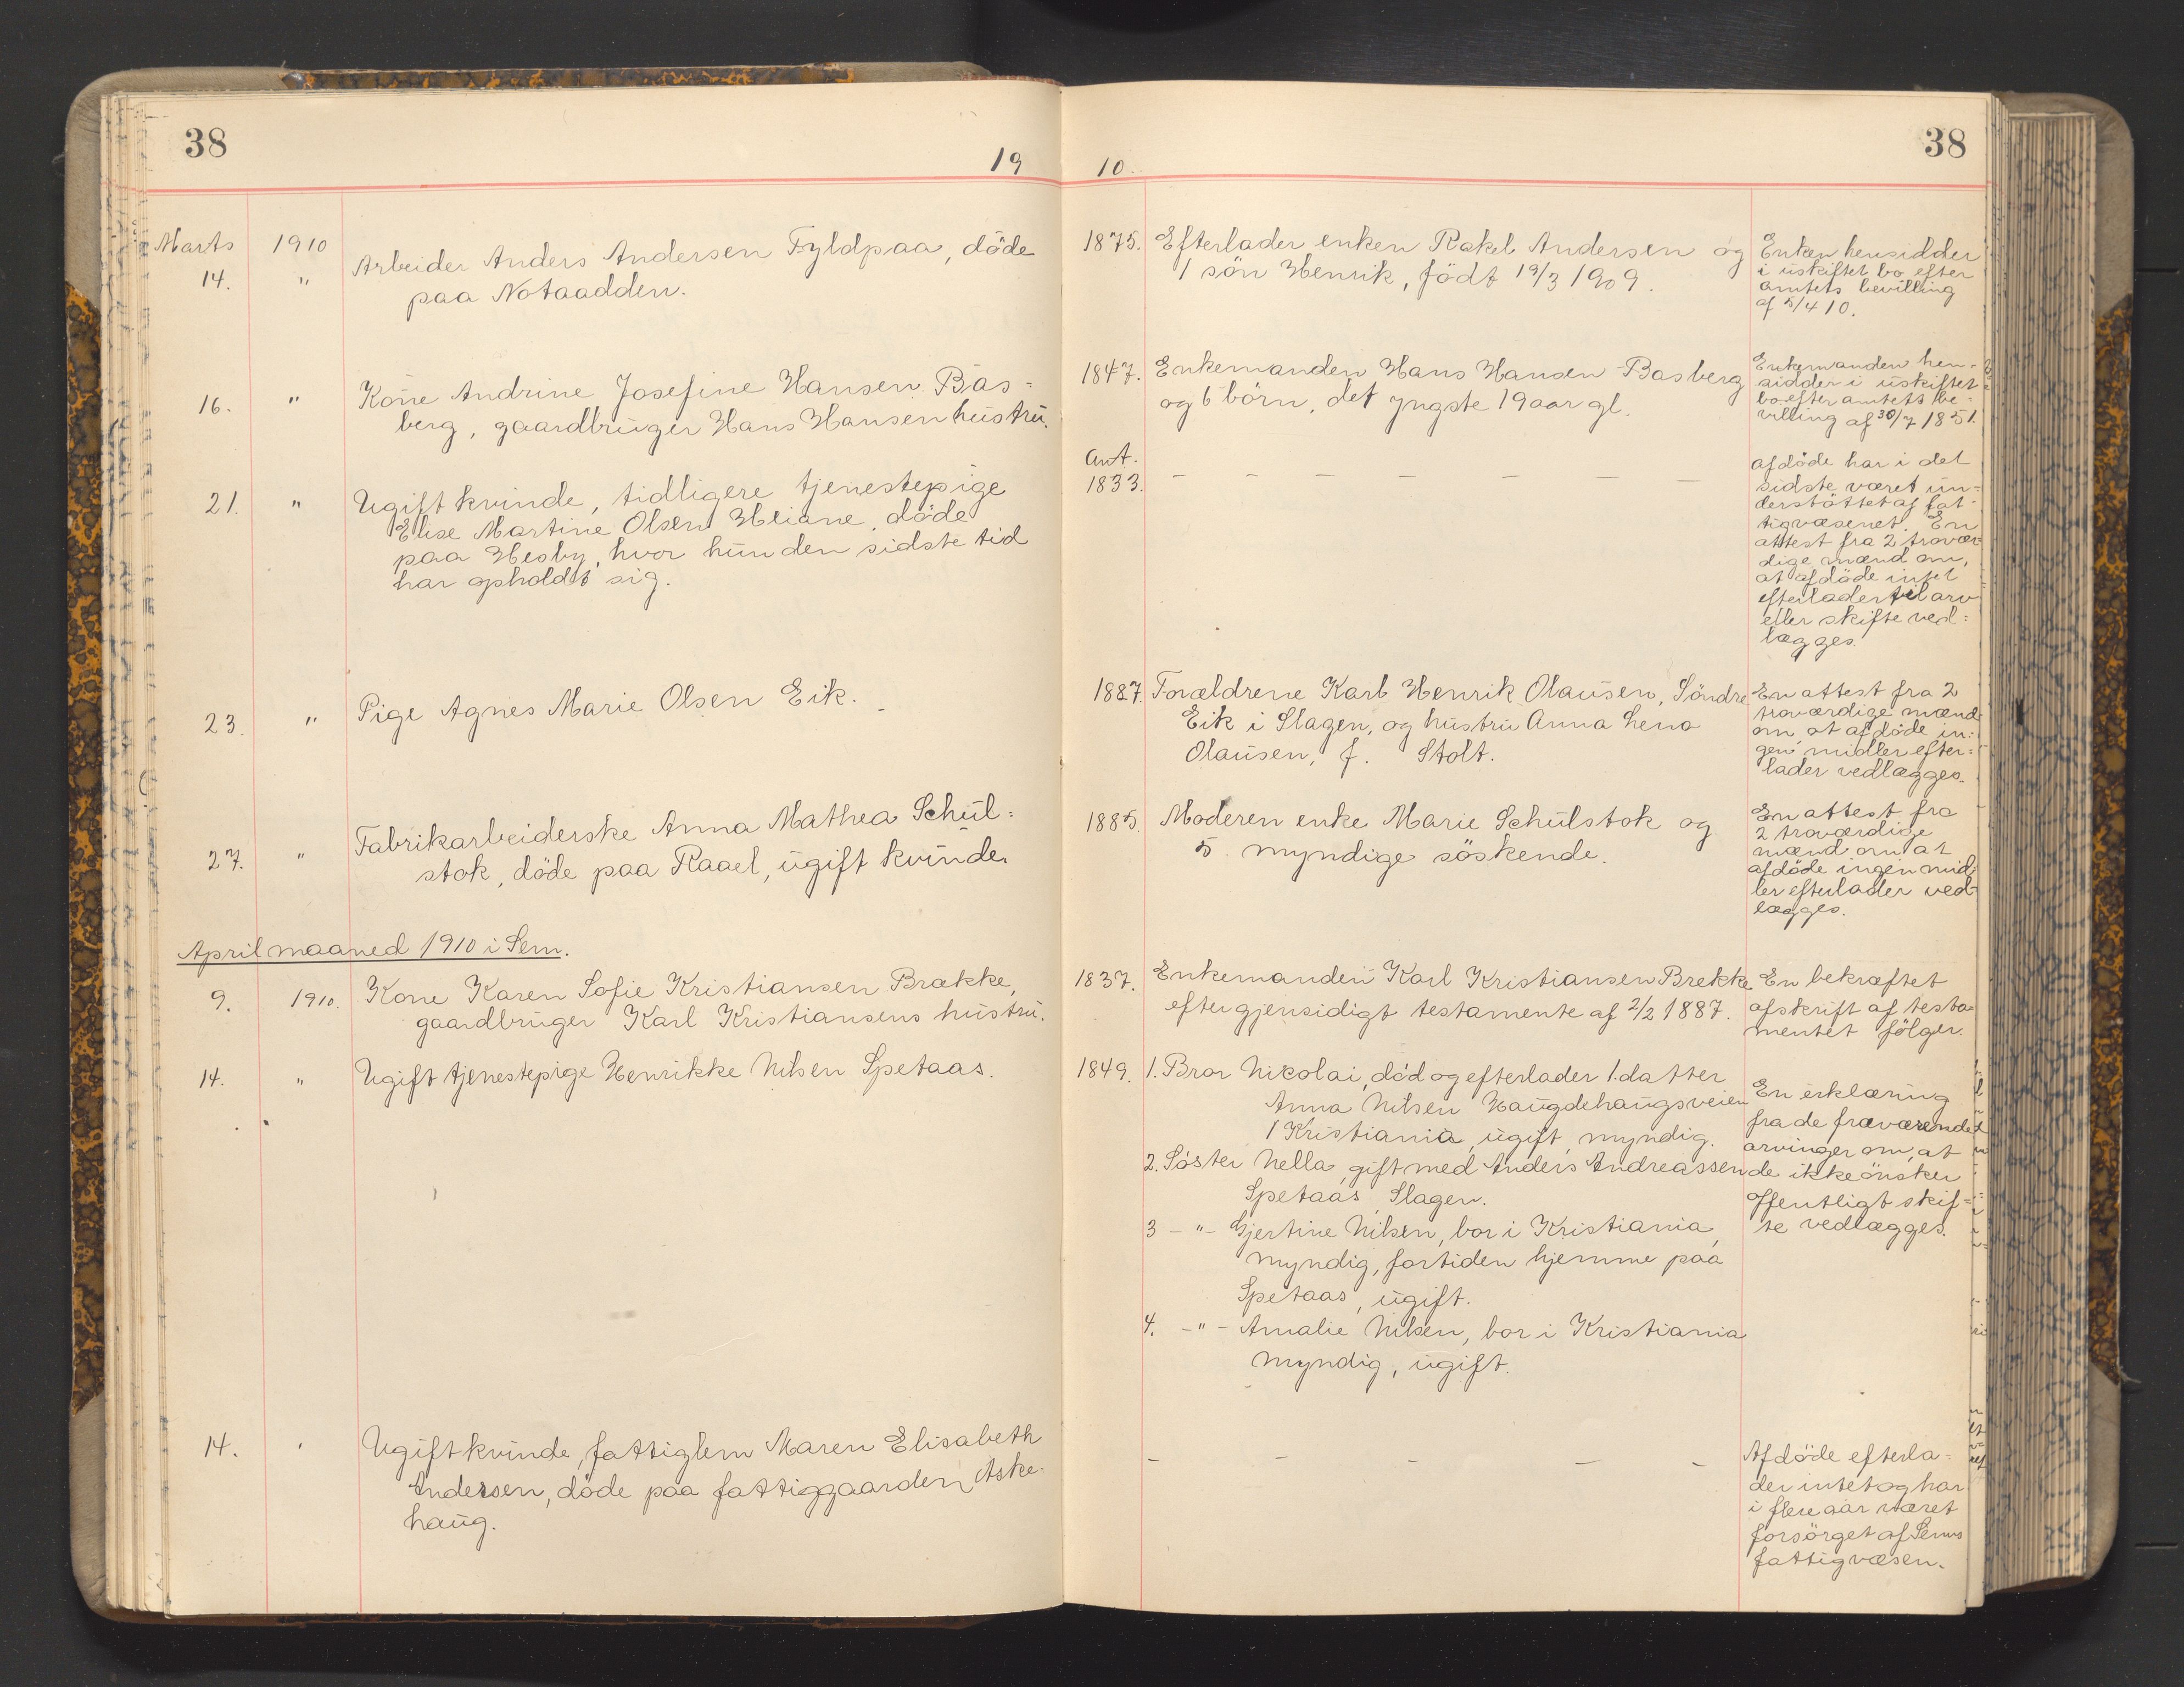 38
38
19 10.
Marts 1910
14. " Arbeider Anders Andersen Fyldpaa, döde
paa Notaadden.
1875. Efterlader enken Rakel Andersen og
1 sön Henrik, födt 19/3 1909.
Enken hensidder
i uskiftet bo efter
amtets bevilling
af 5/4 10.
16. " Kone Andrine Josefine Hansen Bas=
berg, gaardbruger Hans Hansen hustru.
1847. Enkemanden Hans Hansen Basberg
og 6 börn, det yngste 19 aar gl.
Enkemanden hen=
sidder i uskiftet
bo efter amtets be=
villing af 30/7 1851.
21. " Ugift kvinde, tidligere tjenestepige
Elise Martine Olsen Heiane, döde
paa Hesby, hvor hun den sidste tid
har opholdt sig.
Ant.
1833. — — — — — — —
afdöde har i det
sidste været un=
derstöttet af fat=
tigvæsenet. En
attest fra 2 trovær
dige mænd om,
at afdöde intet
efterlader til arv
eller skifte ved=
lægges.
23. " Pige Agnes Marie Olsen Eik. -
1887. Forældrene Karl Henrik Olausen, Söndre
Eik i Slagen, og hustru Anna Lena
Olausen, f. Stolt.
En attest fra 2
troværdige mænd
om, at afdöde in=
gen midler efter=
lader vedlægges.
27. " Fabrikarbeiderske Anna Mathea Schul=
stok, döde paa Raael, ugift kvinde.
1885. Moderen enke Marie Schulstok og
5 myndige söskende.
En attest fra
2 troværdige
mænd om at
afdöde ingen mid
ler efterlader ved=
lægges.
April maaned 1910 i Sem.
9. 1910. Kone Karen Sofie Kristiansen Brække,
gaardbruger Karl Kristiansens hustru.
1837. Enkemanden Karl Kristiansen Brekke
efter gjensidigt testamente af 2/2 1887.
En bekræftet
afskrift af testa=
mentet fölger.
14. " Ugift tjenestepige Henrikke Nilsen Spetaas.
1849. 1. Bror Nicolai, död og efterlader 1. datter
Anna Nilsen Haugdehaugsveien
1 Kristiania, ugift, myndig.
2. Söster Nella, gift med Anders Andreassen
Spetaas, Slagen.
3 — " — Gjertine Nilsen, bor i Kristiania,
myndig, fortiden hjemme paa
Spetaas, ugift.
4. — " — Amalie Nilsen, bor i Kristiania
myndig, ugift.
En erklæring
fra de fraværende
arvinger om, at
de ikke önsker
offentligt skif=
te vedlægges.
14. " Ugift kvinde, fattiglem Maren Elisabeth
Andersen, döde paa fattiggaarden Aske-
haug.
— — — — —
Afdöde efterla=
der intet og har
i flere aar været
forsörget af Sems
fattigvæsen.